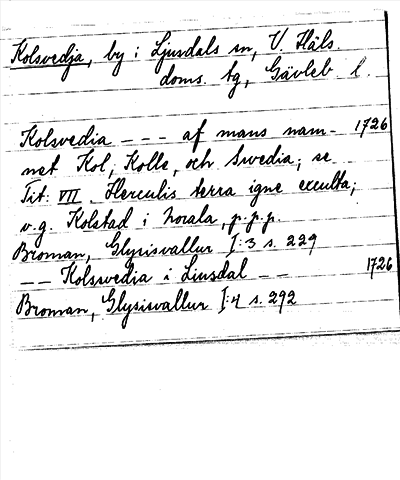 Kolsvedja, by i Ljusdals sn, V. Häls.
doms. tg, Gävleb. l.
Kolsvedia --- af mans nam- 1726
net Kol, Kolle, och Swedia; se
Tit. VII. Herculis terra igne exculta;
v.g. Kolstad i Norala, p.p.p.
Broman, Glysisvallur I:3 s. 229
-- Kolswedia i Liusdal -- 1726
Broman, Glysisvallur I:4 s. 292